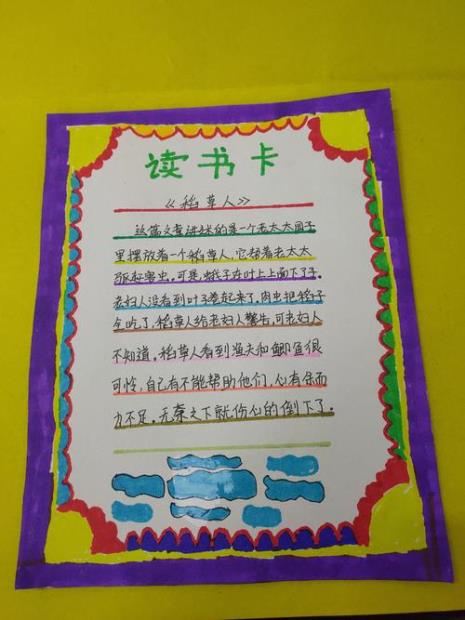 读书卡
《稻草人》
这篇文章讲述的是一个老太太园子
里摆放着一个稻草人,它帮着老太太
驱赶害虫。可是蛾子在叶上上面下了子。
老妇人没看到叶子卷起来了。肉虫把稻子
全吃了,稻草人给老妇人警告,可老妇人
不知道。稻草人看到渔夫和鲫鱼很
可怜,自己有不能帮助他们,心有余而
力不足。无奈之下就伤心的倒下了。